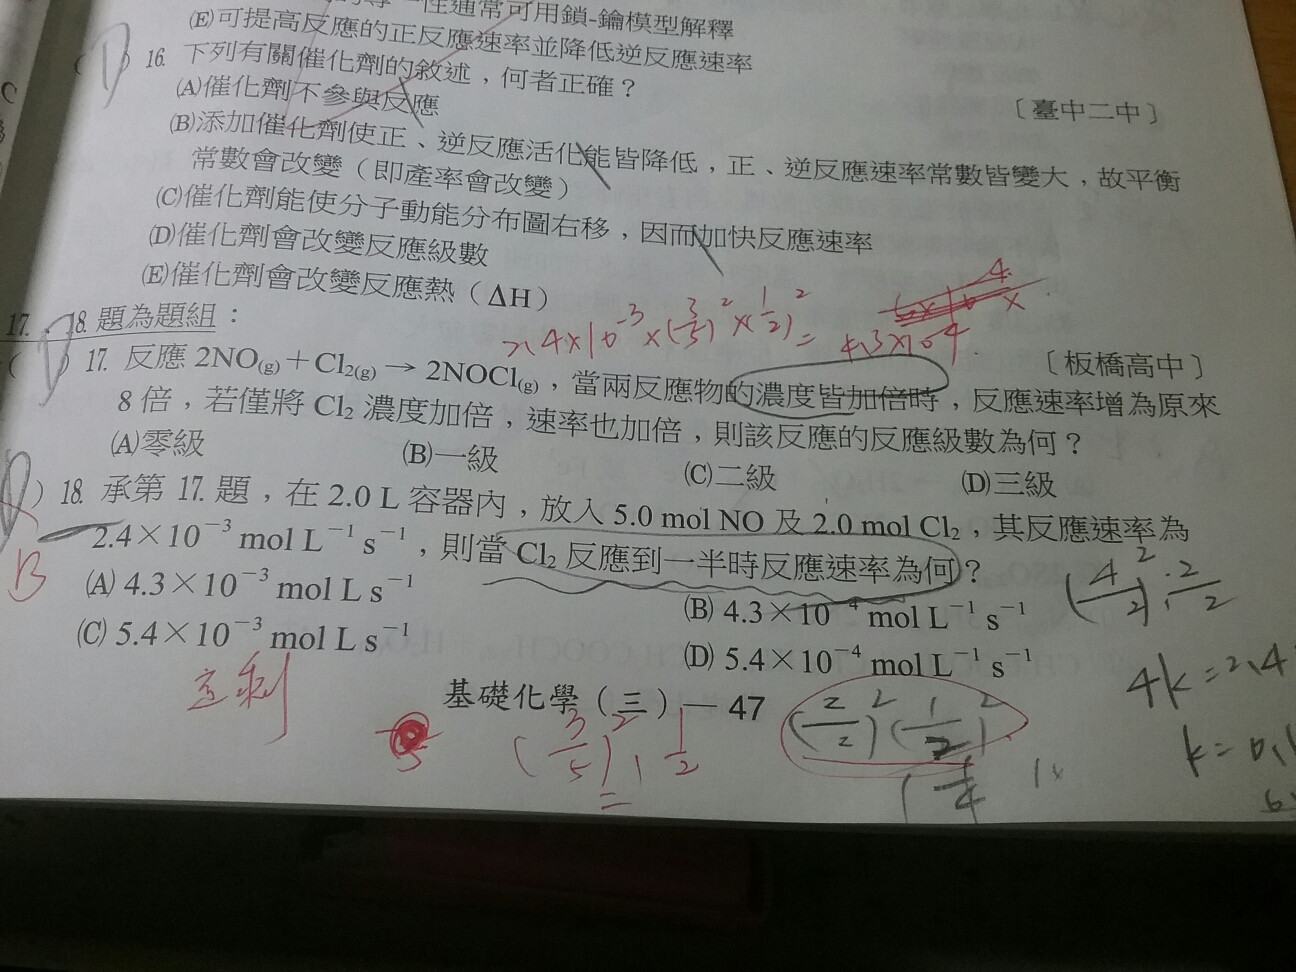 性通常可用鎖-鑰模型解釋
(E)可提高反應的正反應速率並降低逆反應速率
(D) 16. 下列有關催化劑的敘述，何者正確？
〔臺中二中〕
(A)催化劑不參與反應
(B)添加催化劑使正、逆反應活化能皆降低，正、逆反應速率常數皆變大，故平衡
常數會改變（即產率會改變）
(C)催化劑能使分子動能分布圖右移，因而加快反應速率
(D)催化劑會改變反應級數
(E)催化劑會改變反應熱（ΔH）
17. 18. 題為題組：
2.4×10⁻³×(3/5)²×(1/2)²= 4.3×10⁻⁴
〔板橋高中〕
(D) 17. 反應 2NO(g)＋Cl2(g) → 2NOCl(g)，當兩反應物的濃度皆加倍時，反應速率增為原來
8 倍，若僅將 Cl2 濃度加倍，速率也加倍，則該反應的反應級數為何？
(A)零級 (B)一級 (C)二級 (D)三級
) 18. 承第 17. 題，在 2.0 L 容器內，放入 5.0 mol NO 及 2.0 mol Cl2，其反應速率為
2.4×10⁻³ mol L⁻¹ s⁻¹，則當 Cl2 反應到一半時反應速率為何？
B
(A) 4.3×10⁻³ mol L s⁻¹ (B) 4.3×10⁻⁴ mol L⁻¹ s⁻¹
(C) 5.4×10⁻³ mol L s⁻¹ (D) 5.4×10⁻⁴ mol L⁻¹ s⁻¹
(4/2)² · 2/2
4k=2.4
k=0.
基礎化學（三）— 47
(3/5)² · 1/2
=
(2/2)² (1/2)²